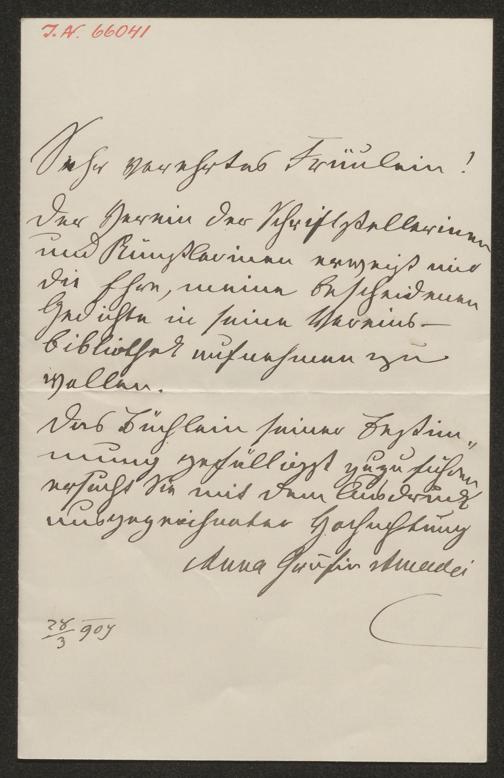 I. N. 66041
Sehr verehrtes Fräulein!
Der Verein der Schriftstellerinen
und Künstlerinen erweist mir
die Ehre, meine bescheidenen
Gedichte in seine Vereins-
bibliothek aufnehmen zu
wollen.
Das Büchlein seiner Bestim„
mung gefälligst zuzuführen
ersucht Sie mit dem Ausdruck
ausgezeichneter Hochachtung
Anna Gräfin Amadei
28/3